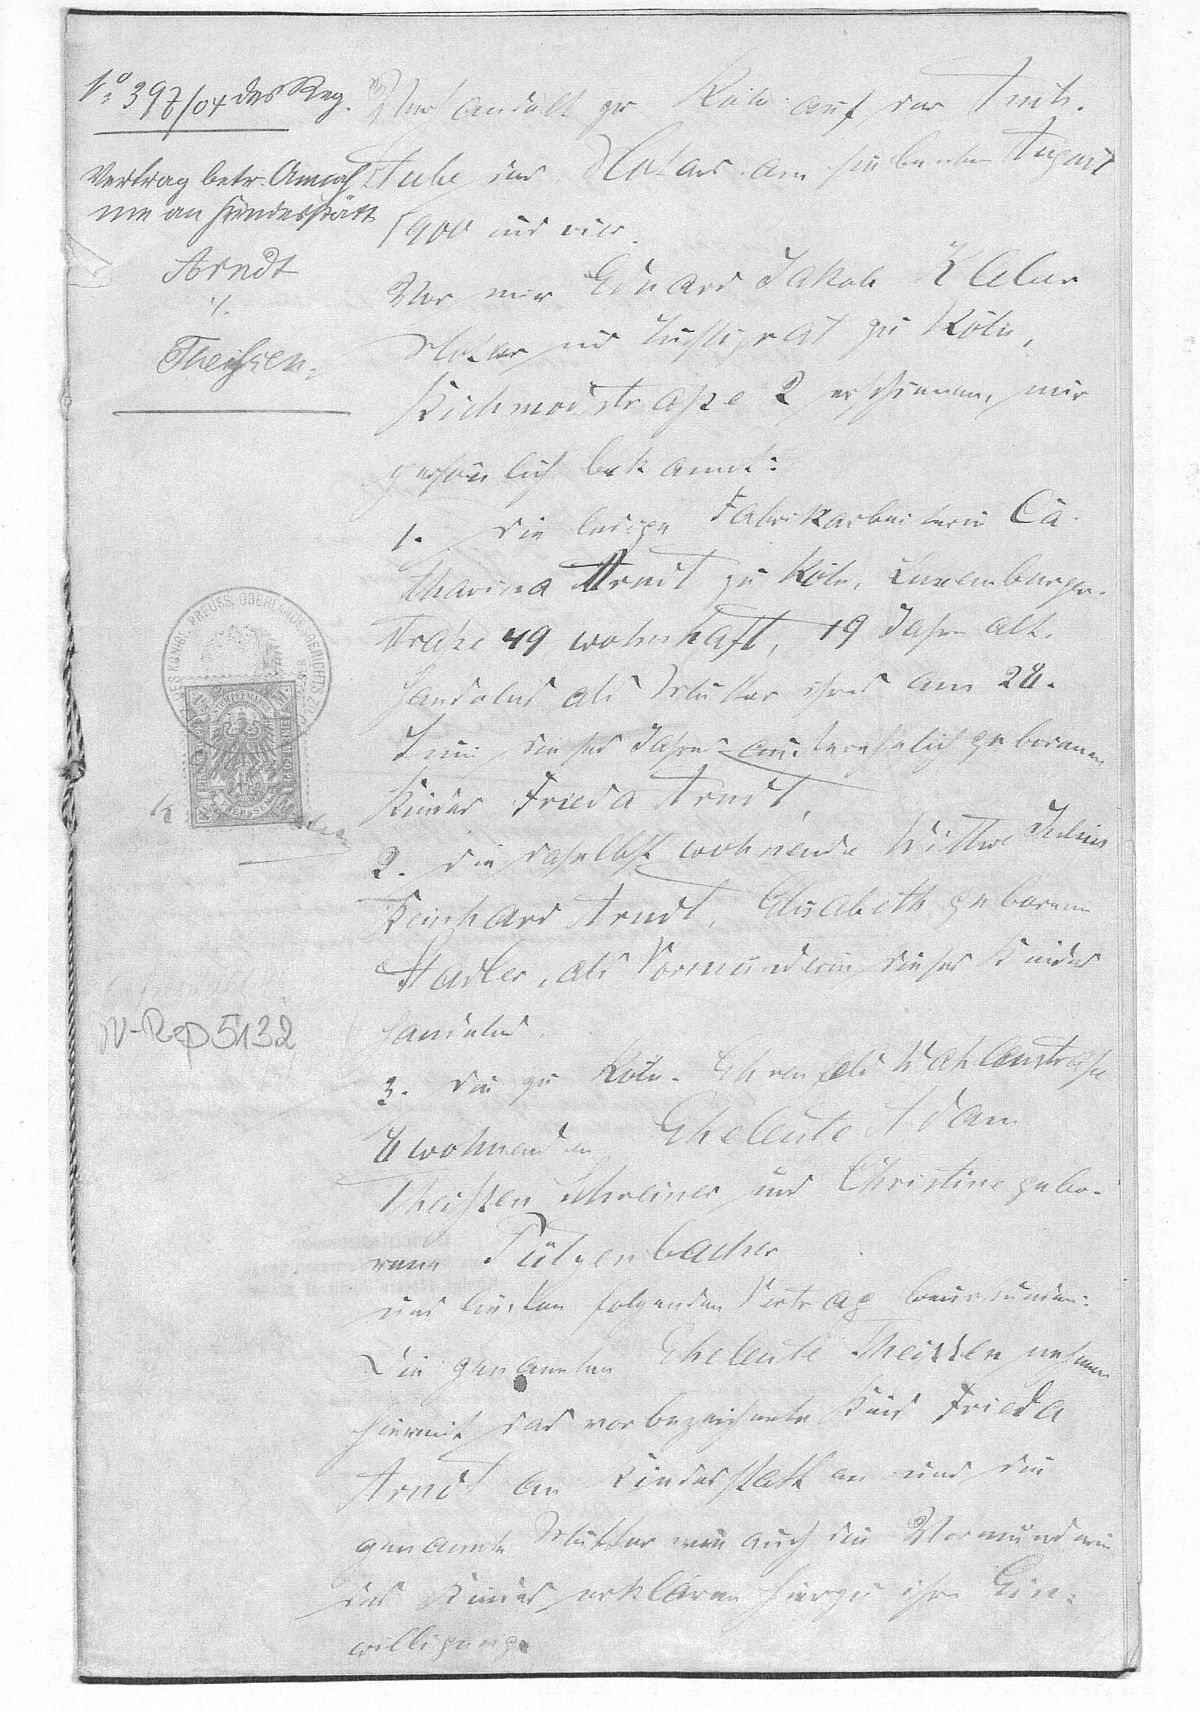 No 397/04 des Reg.
Vertrag betr. Annah
me an Kindesstatt
Arndt
./.
Theissen.
Verhandelt zu Köln auf der Amts-
stube des Notars am siebenten August
1900 und vier.
Vor mir Eduard Jakob
Notar und Justizrat zu Köln,
Richmodstraße 2 erschienen, mir
persönlich bekannt:
1. die ledige Fabrikarbeiterin Ca-
tharina Arndt zu Köln, Luxemburger-
straße 49 wohnhaft, 19 Jahre alt,
handelnd als Mutter ihres am 28.
Juni dieses Jahres außerehelich geborenen
Kindes Frieda Arndt,
2. die daselbst wohnende Wittwe Julius
Reinhard Arndt, Elisabeth geborene
Stadler, als Vormünderin dieses Kindes
handelnd,
3. die zu Köln-Ehrenfeld
wohnenden Eheleute Adam
Theissen, Schreiner und Christine gebo-
rene Fützenbacher
und ließen folgenden Vertrag beurkunden:
Die genannten Eheleute Theissen nehmen
hiermit das vorbezeichnete Kind Frieda
Arndt an Kindesstatt an und die
genannte Mutter wie auch die Vormünderin
des Kindes erklären hierzu ihre Ein-
willigung.
DES KÖNIGL. PREUSS. OBERLANDESGERICHTS ZU CÖLN
IV-Rep 5132